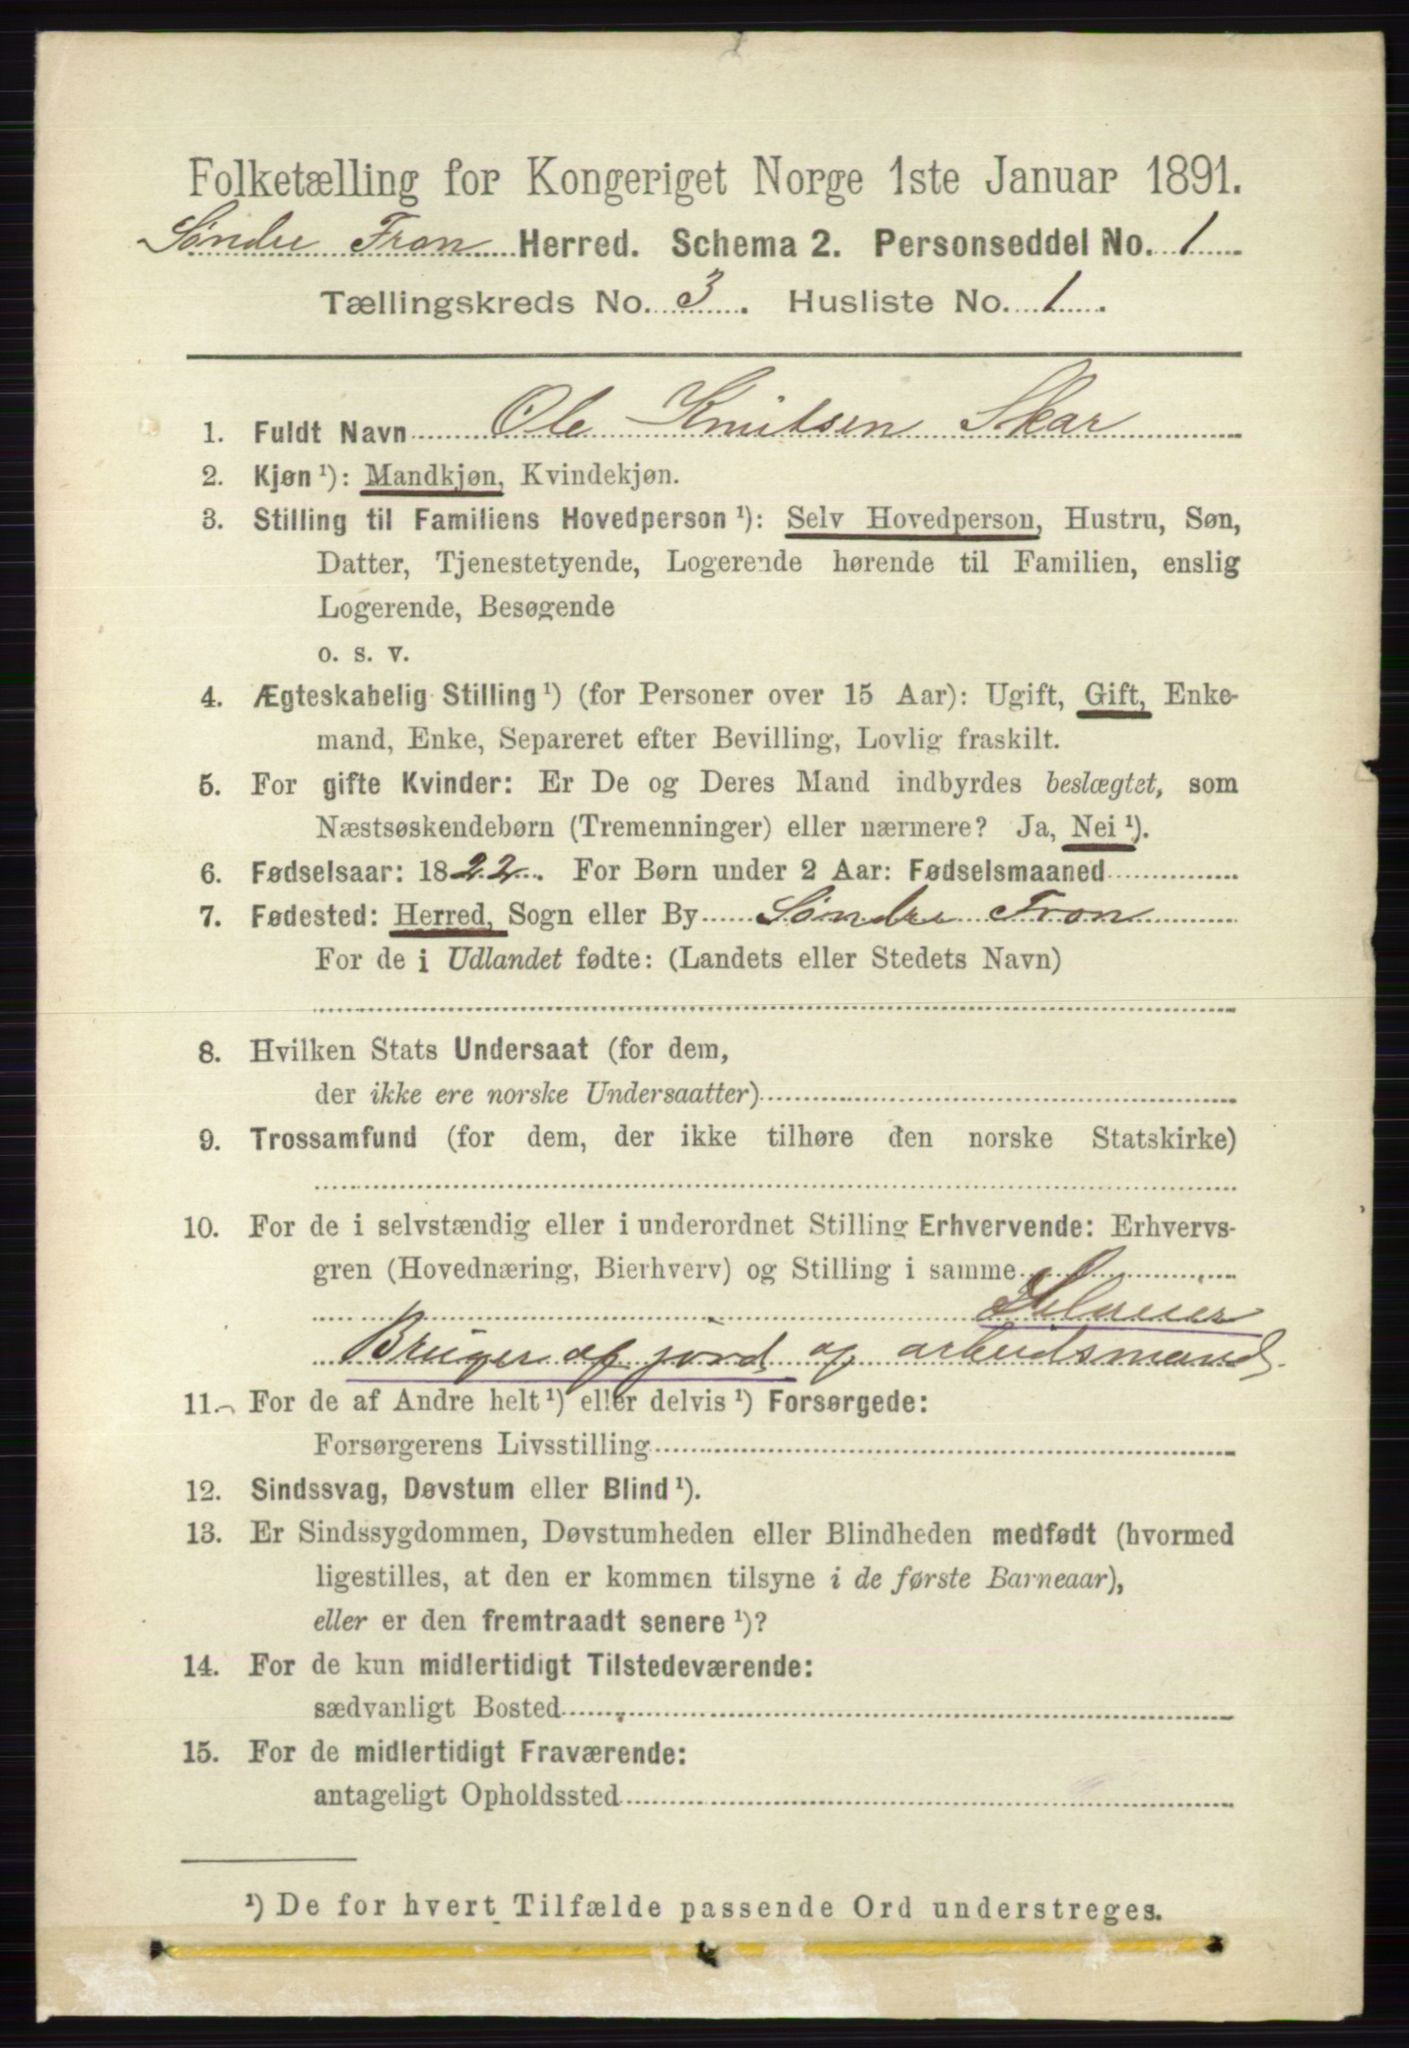 Folketælling for Kongeriget Norge 1ste Januar 1891.
Söndre Fron Herred. Schema 2. Personseddel No. 1
Tællingskreds No. 3. Husliste No. 1.
1. Fuldt Navn Ole Knudsen Skar
2. Kjøn ¹): Mandkjøn, Kvindekjøn.
3. Stilling til Familiens Hovedperson ¹): Selv Hovedperson, Hustru, Søn,
Datter, Tjenestetyende, Logerende hørende til Familien, enslig
Logerende, Besøgende
o. s. v.
4. Ægteskabelig Stilling ¹) (for Personer over 15 Aar): Ugift, Gift, Enke-
mand, Enke, Separeret efter Bevilling, Lovlig fraskilt.
5. For gifte Kvinder: Er De og Deres Mand indbyrdes beslægtet, som
Næstsøskendebørn (Tremenninger) eller nærmere? Ja, Nei ¹).
6. Fødselsaar: 1822. For Børn under 2 Aar: Fødselsmaaned
7. Fødested: Herred, Sogn eller By Söndre Fron
For de i Udlandet fødte: (Landets eller Stedets Navn)
8. Hvilken Stats Undersaat (for dem,
der ikke ere norske Undersaatter)
9. Trossamfund (for dem, der ikke tilhøre den norske Statskirke)
10. For de i selvstændig eller i underordnet Stilling Erhvervende: Erhvervs-
gren (Hovednæring, Bierhverv) og Stilling i samme
Bruger af jord og arbeidsmand.
11. For de af Andre helt ¹) eller delvis ¹) Forsørgede:
Forsørgerens Livsstilling
12. Sindssvag, Døvstum eller Blind ¹).
13. Er Sindssygdommen, Døvstumheden eller Blindheden medfødt (hvormed
ligestilles, at den er kommen tilsyne i de første Barneaar),
eller er den fremtraadt senere ¹)?
14. For de kun midlertidigt Tilstedeværende:
sædvanligt Bosted
15. For de midlertidigt Fraværende:
antageligt Opholdssted
¹) De for hvert Tilfælde passende Ord understreges.